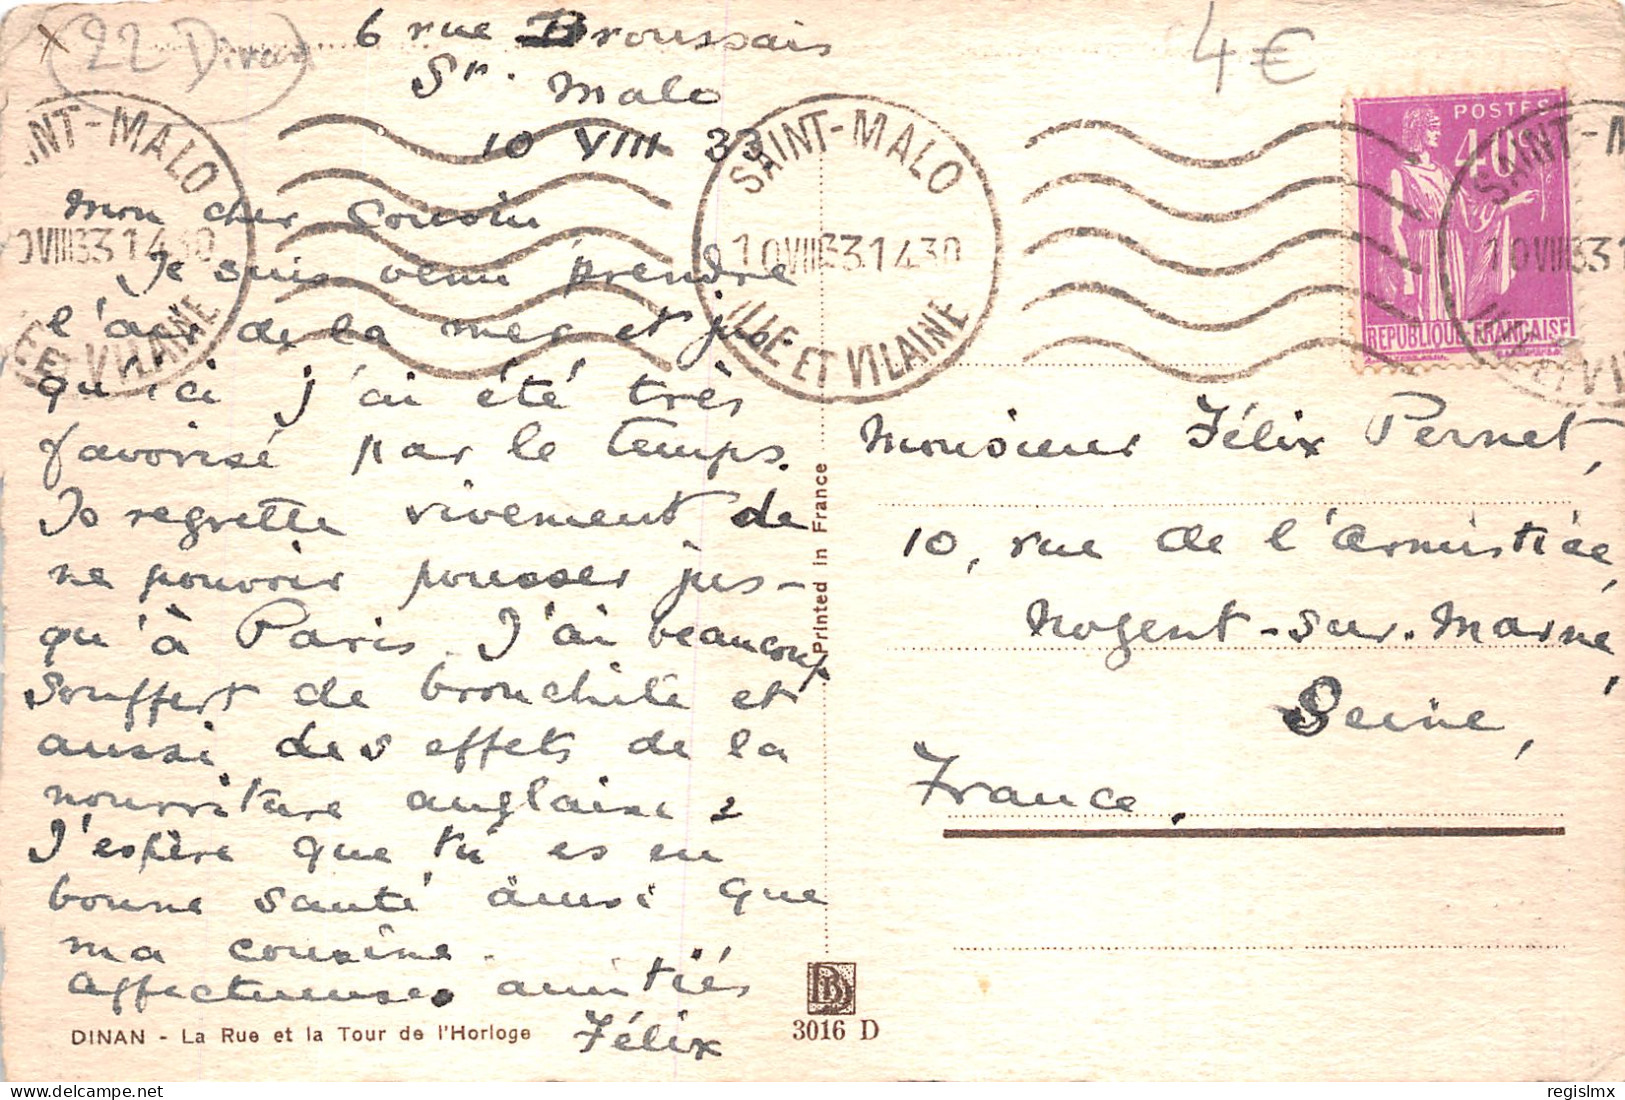 22 Dinan
4€
6 rue Broussais
St. Malo
10 VIII 33
Mon cher Cousin
Je suis venu prendre
l'air de la mer et jus-
qu'ici j'ai été très
favorisé par le temps.
Je regrette vivement de
ne pouvoir pousser jus-
qu'à Paris. J'ai beaucoup
souffert de bronchite et
aussi des effets de la
nourriture anglaise.
J'espère que tu es en
bonne santé ainsi que
ma cousine.
Affectueuses amitiés
Félix
DINAN - La Rue et la Tour de l'Horloge
SAINT-MALO
10VIII33 1430
ILLE ET VILAINE
SAINT-MALO
10VIII33 1430
ILLE ET VILAINE
POSTES
40c
REPUBLIQUE FRANÇAISE
SAINT-M
10VIII33 1
ILLE ET V
Printed in France
Monsieur Félix Pernet,
10, rue de l'Armistice,
Nogent-sur-Marne,
Seine,
France.
3016 D
regislmx